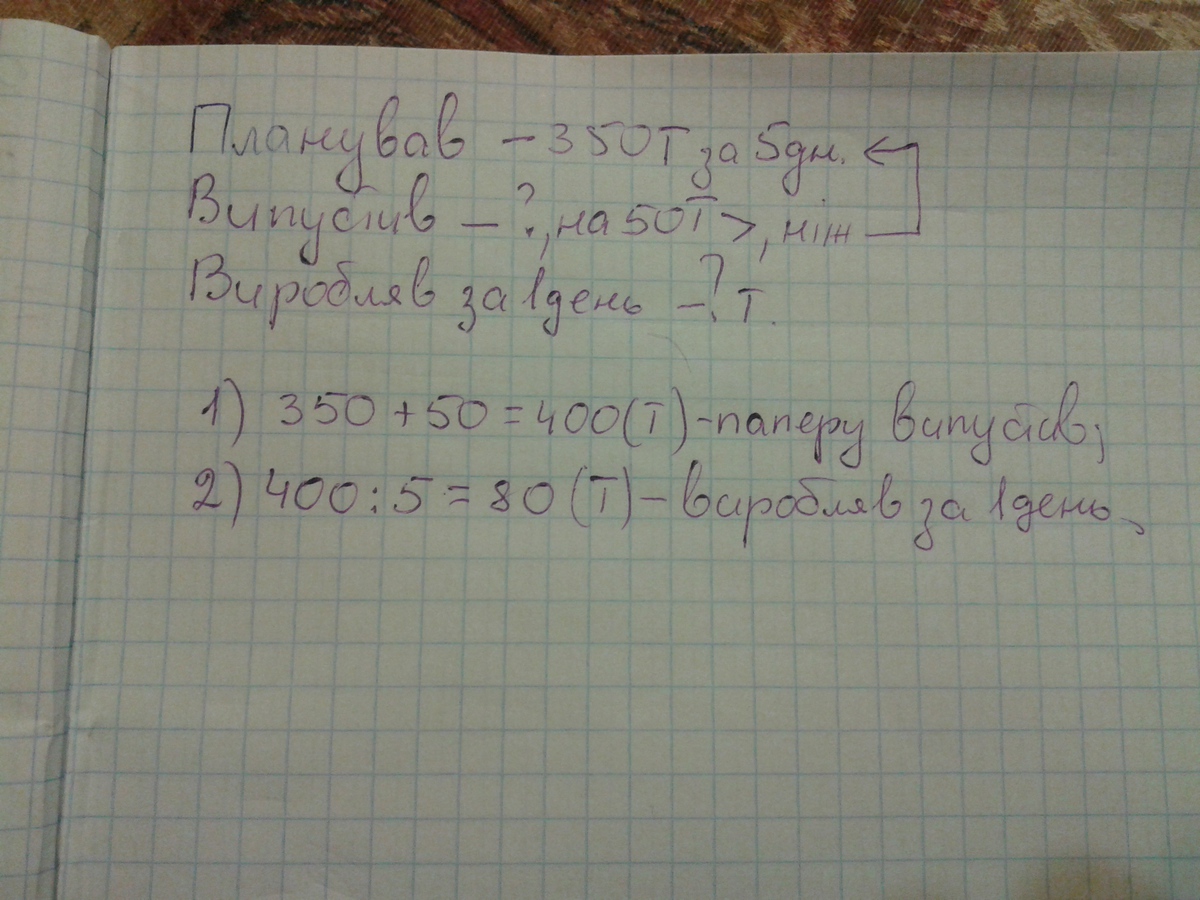 Планував – 350 т за 5 дн.
Випустив – ?, на 50 т >, ніж
Виробляв за 1 день – ? т.
1) 350 + 50 = 400 (т) - паперу випустив;
2) 400 : 5 = 80 (т) – виробляв за 1 день.